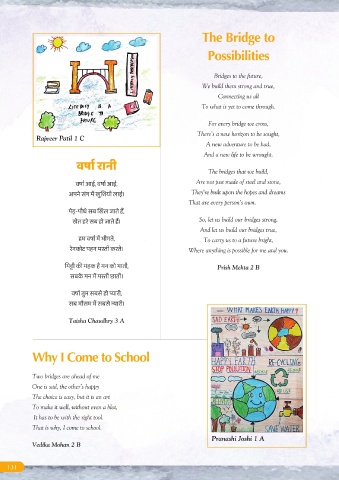 LITERACY IS A
BRIDGE TO
FUTURE
Rajveer Patil 1 C
वर्षा रानी
वर्षा आई, वर्षा आई,
अपने संग में खुशियाँ लाई।
पेड़-पौधे सब खिल जाते हैं,
खेत हरे सब हो जाते हैं।
हम वर्षा में भीगते,
रेनकोट पहन मस्ती करते।
मिट्टी की महक है मन को भाती,
सबके मन में मस्ती छाती।
वर्षा तुम सबसे हो प्यारी,
सब मौसम में सबसे न्यारी।
Taisha Chaudhry 3 A
Why I Come to School
Two bridges are ahead of me
One is sad, the other's happy
The choice is easy, but it is an art
To make it well, without even a blot,
It has to be with the right tool.
That is why, I come to school.
Vedika Mohan 2 B
The Bridge to
Possibilities
Bridges to the future,
We build them strong and true,
Connecting us all
To what is yet to come through.
For every bridge we cross,
There's a new horizon to be sought,
A new adventure to be had,
And a new life to be wrought.
The bridges that we build,
Are not just made of steel and stone,
They're built upon the hopes and dreams
That are every person's own.
So, let us build our bridges strong,
And let us build our bridges true,
To carry us to a future bright,
Where anything is possible for me and you.
Prish Mehta 2 B
WHAT MAKES EARTH HAPPY?
SAD EARTH
HAPPY EARTH
STOP POLLUTION
RE-CYCLING
SAVE WATER
Pranashi Joshi 1 A
131